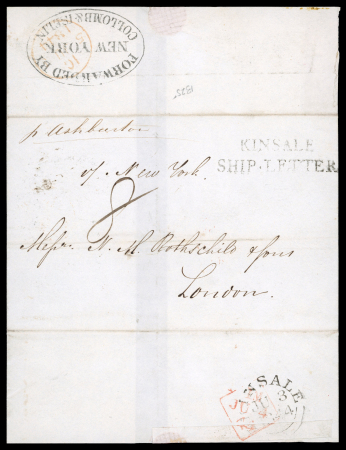 FORWARDED BY
COLLOMB & ISELIN
NEW YORK
1825
p Ashburton
KINSALE
SHIP-LETTER
v/ New York.
8
Messrs. N. M. Rothschild & Sons
London.
KINSALE
JU 3